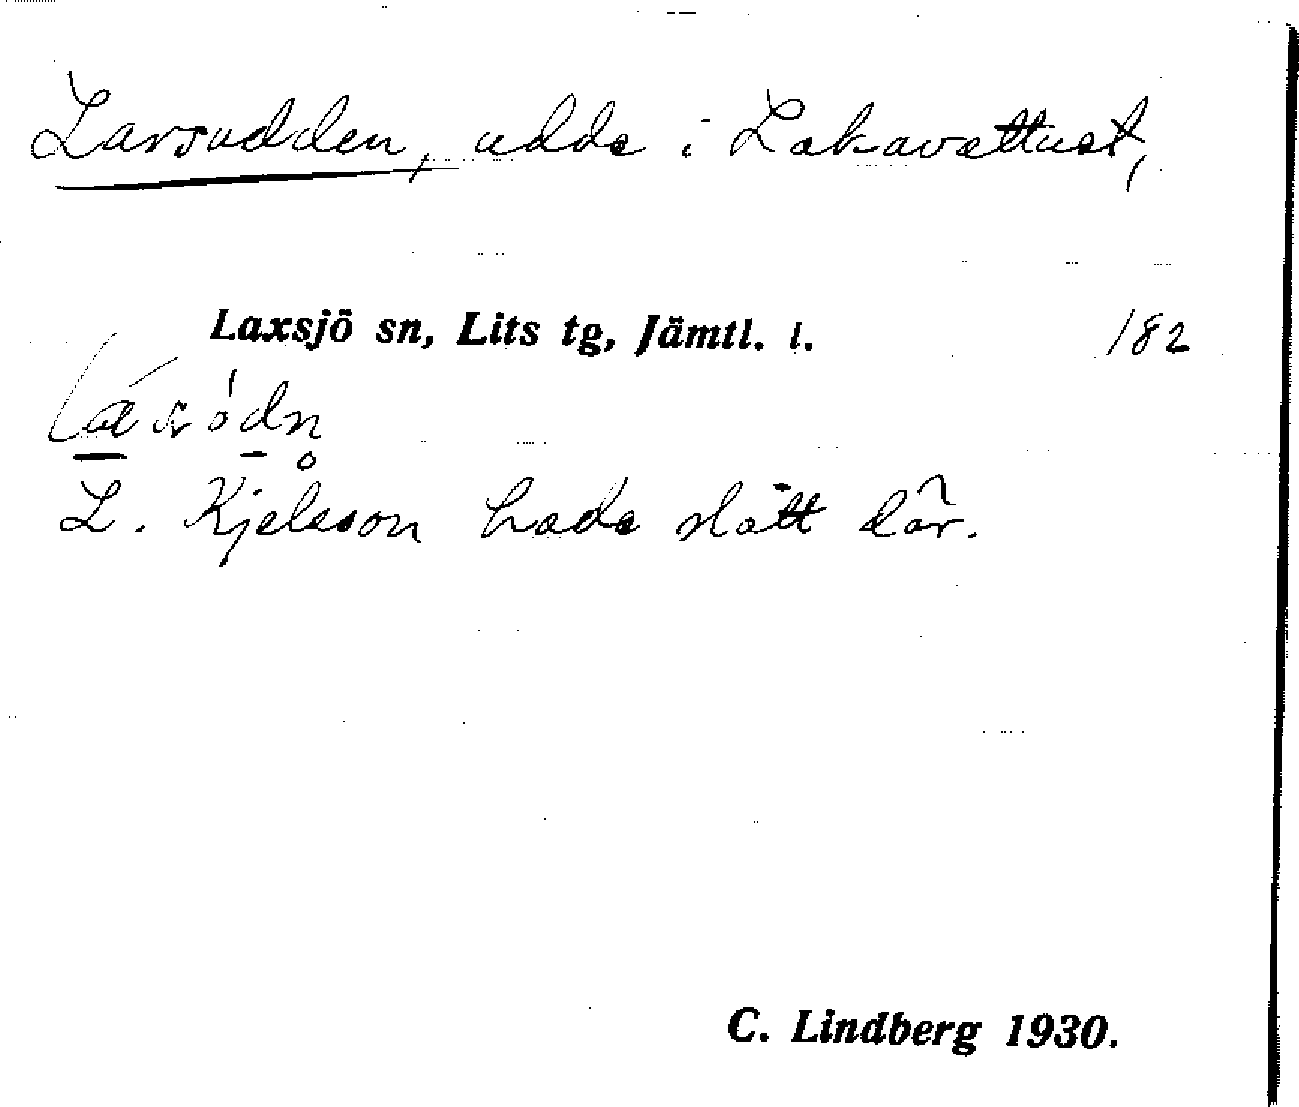 Larsudden, udde i Lakavattnet,
Laxsjö sn, Lits tg, Jämtl. l. 182
L. Kjelsson hade slått där.
C. Lindberg 1930.